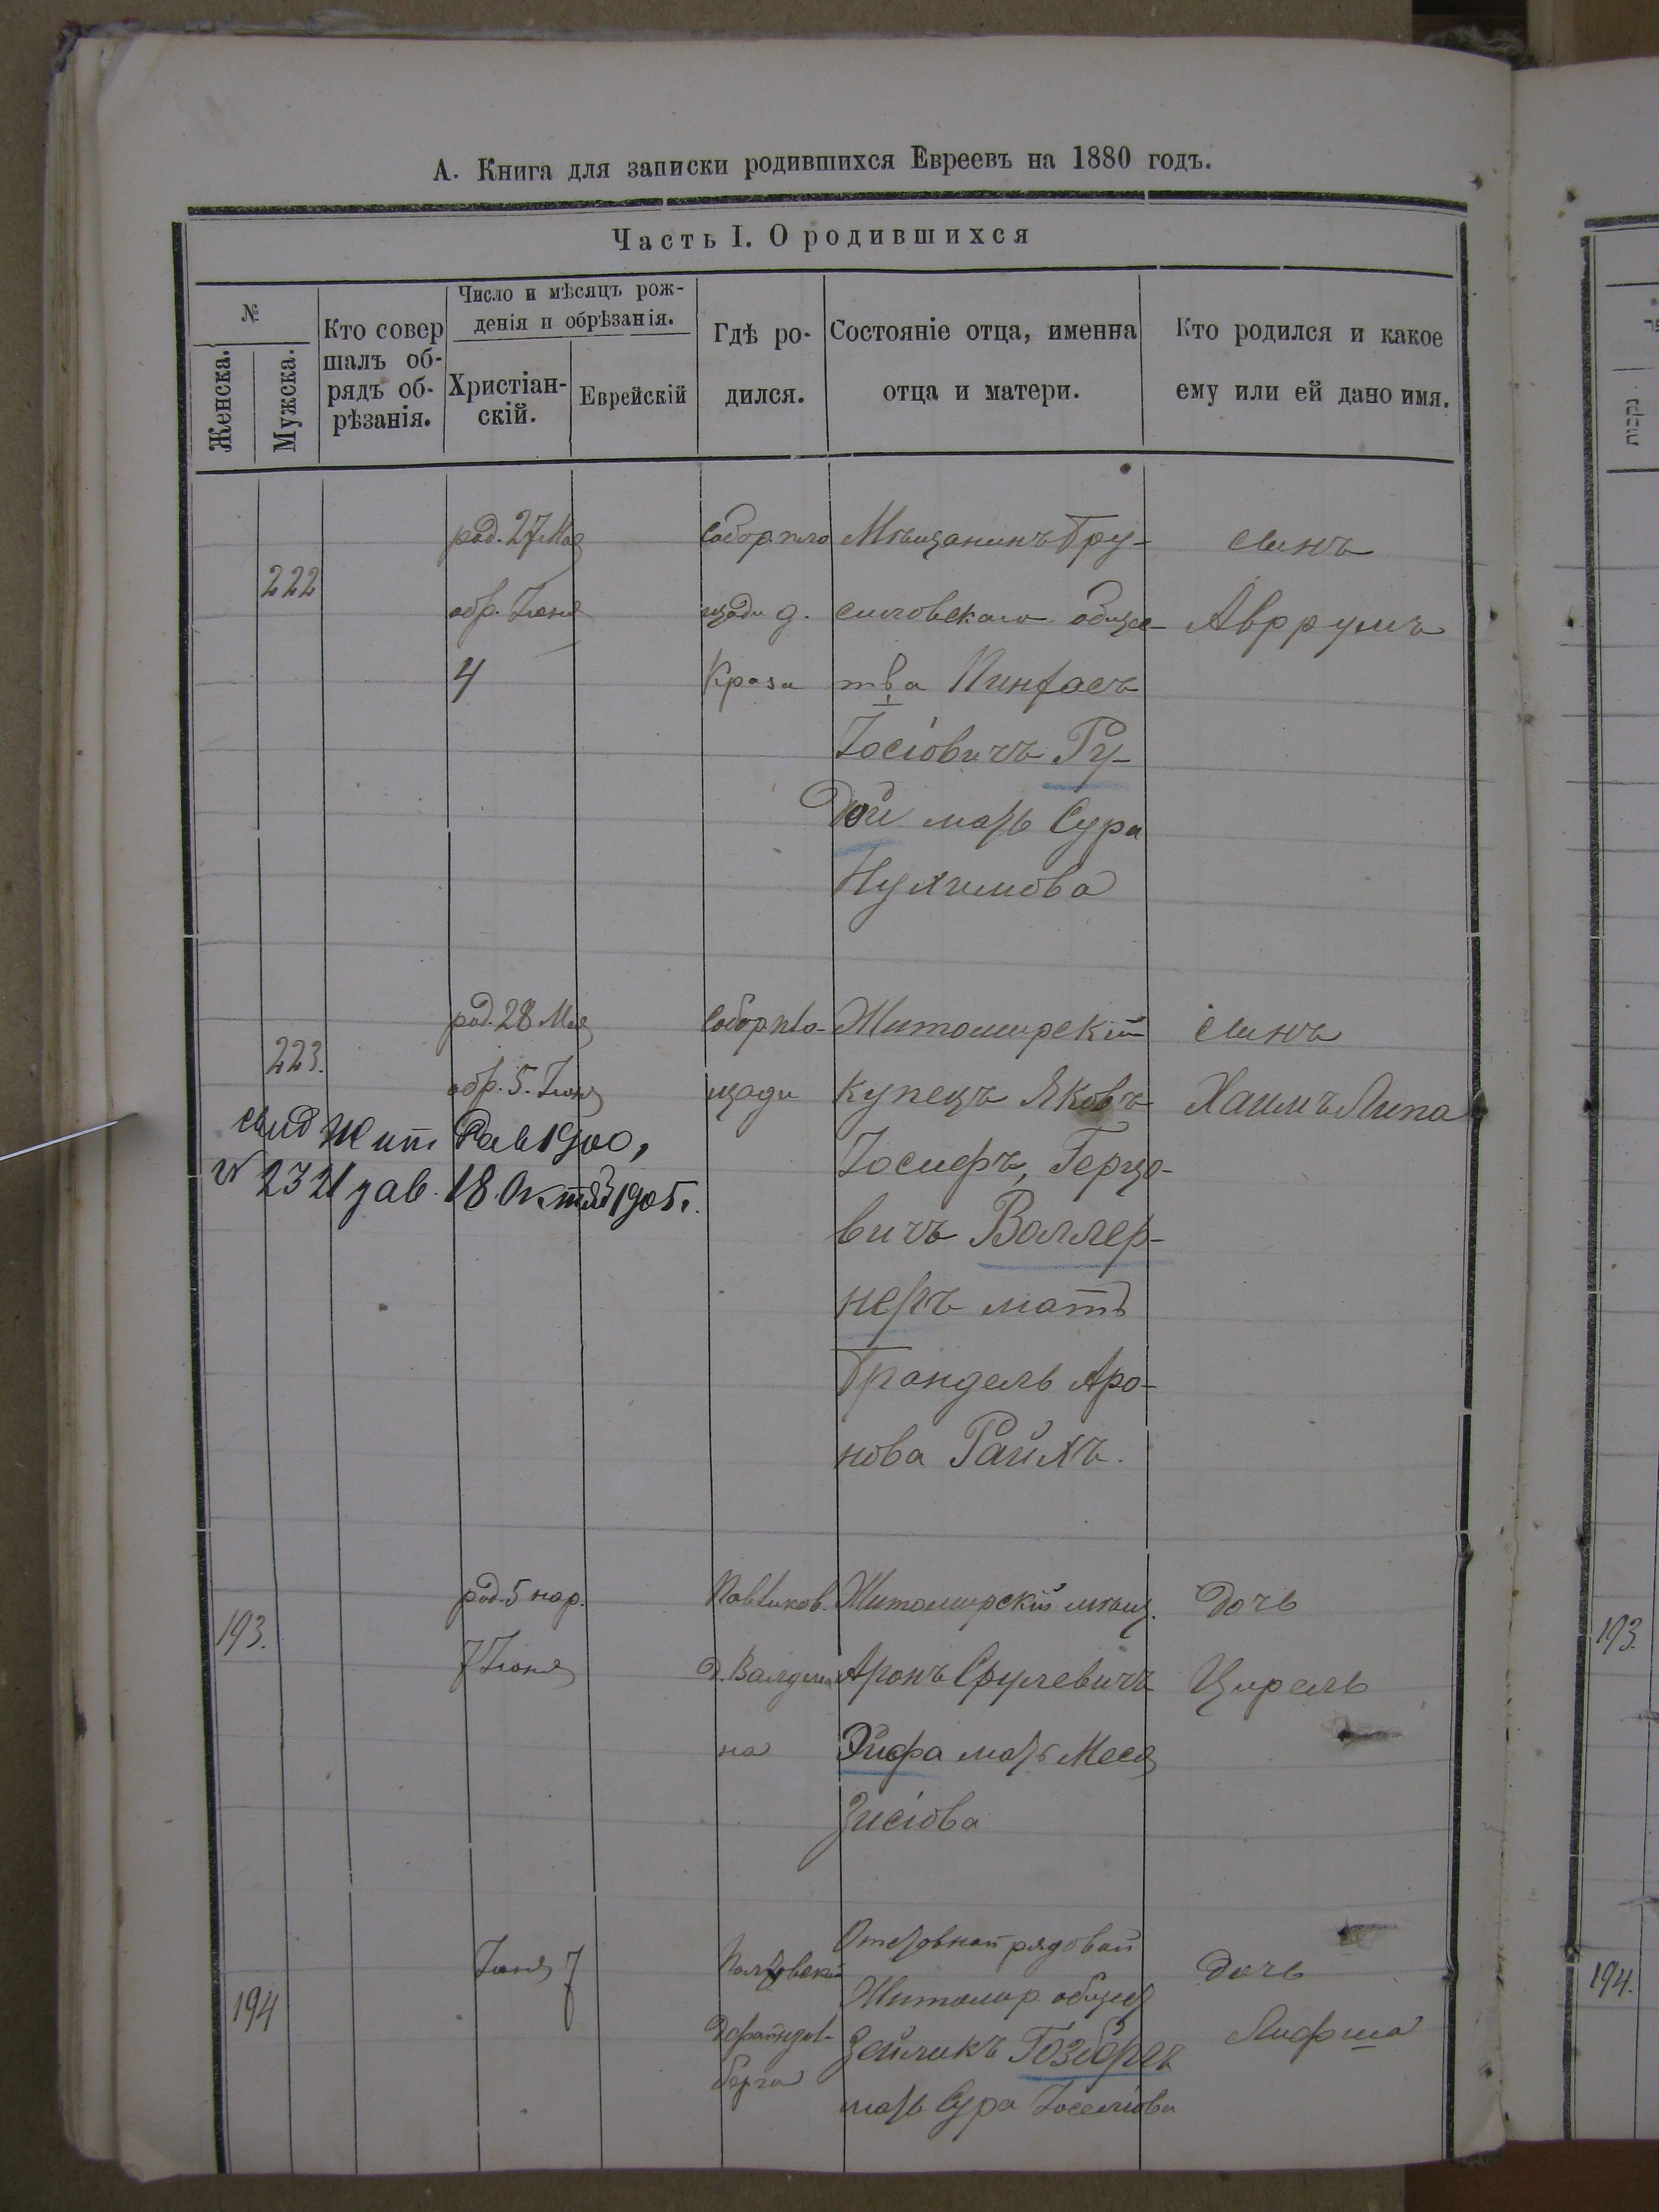 А. Книга для записки родившихся Евреевъ на 1880 годъ.
Часть I. О родившихся
№
Женска.
Мужска.
Кто совер
шалъ об-
рядъ об-
рѣзанія.
Число и мѣсяцъ рож-
денія и обрѣзанія.
Христіан-
скій.
Еврейскій
Гдѣ ро-
дился.
Состояніе отца, именна
отца и матери.
Кто родился и какое
ему или ей дано имя.
222
род. 27 Мая
обр. Іюня
4
Собор. пло
щади д.
Краза
Мѣщанинъ Тру-
силовскаго общес-
тва Пинхасъ
Іосіовичъ Ру-
дой мать Сура
Нухимова
Сынъ
Авррумъ
223.
род. 28 Мая
обр. 5. Іюня
Собор пло-
щади
Житомирскій
купецъ Яковъ
Іосифъ, Герцо-
вичъ Воллер-
неръ мать
Трандель Аро-
нова Райхъ.
Сынъ
Хаимъ Липа
свид Жит Рав 1900,
№ 2321 зав. 18 Октяб 1905.
193.
род. 5 нар.
7 Іюня
на
Житомирскій мѣщ.
Аронъ Срулевичъ
Эйфра мать Мася
Зисіова
Дочь
Цирель
194
Іюня 7
берга
рядовой
Житомир. общ
Зейликъ
мать Сура
Дочь
Лифша
193.
194.
נקבות